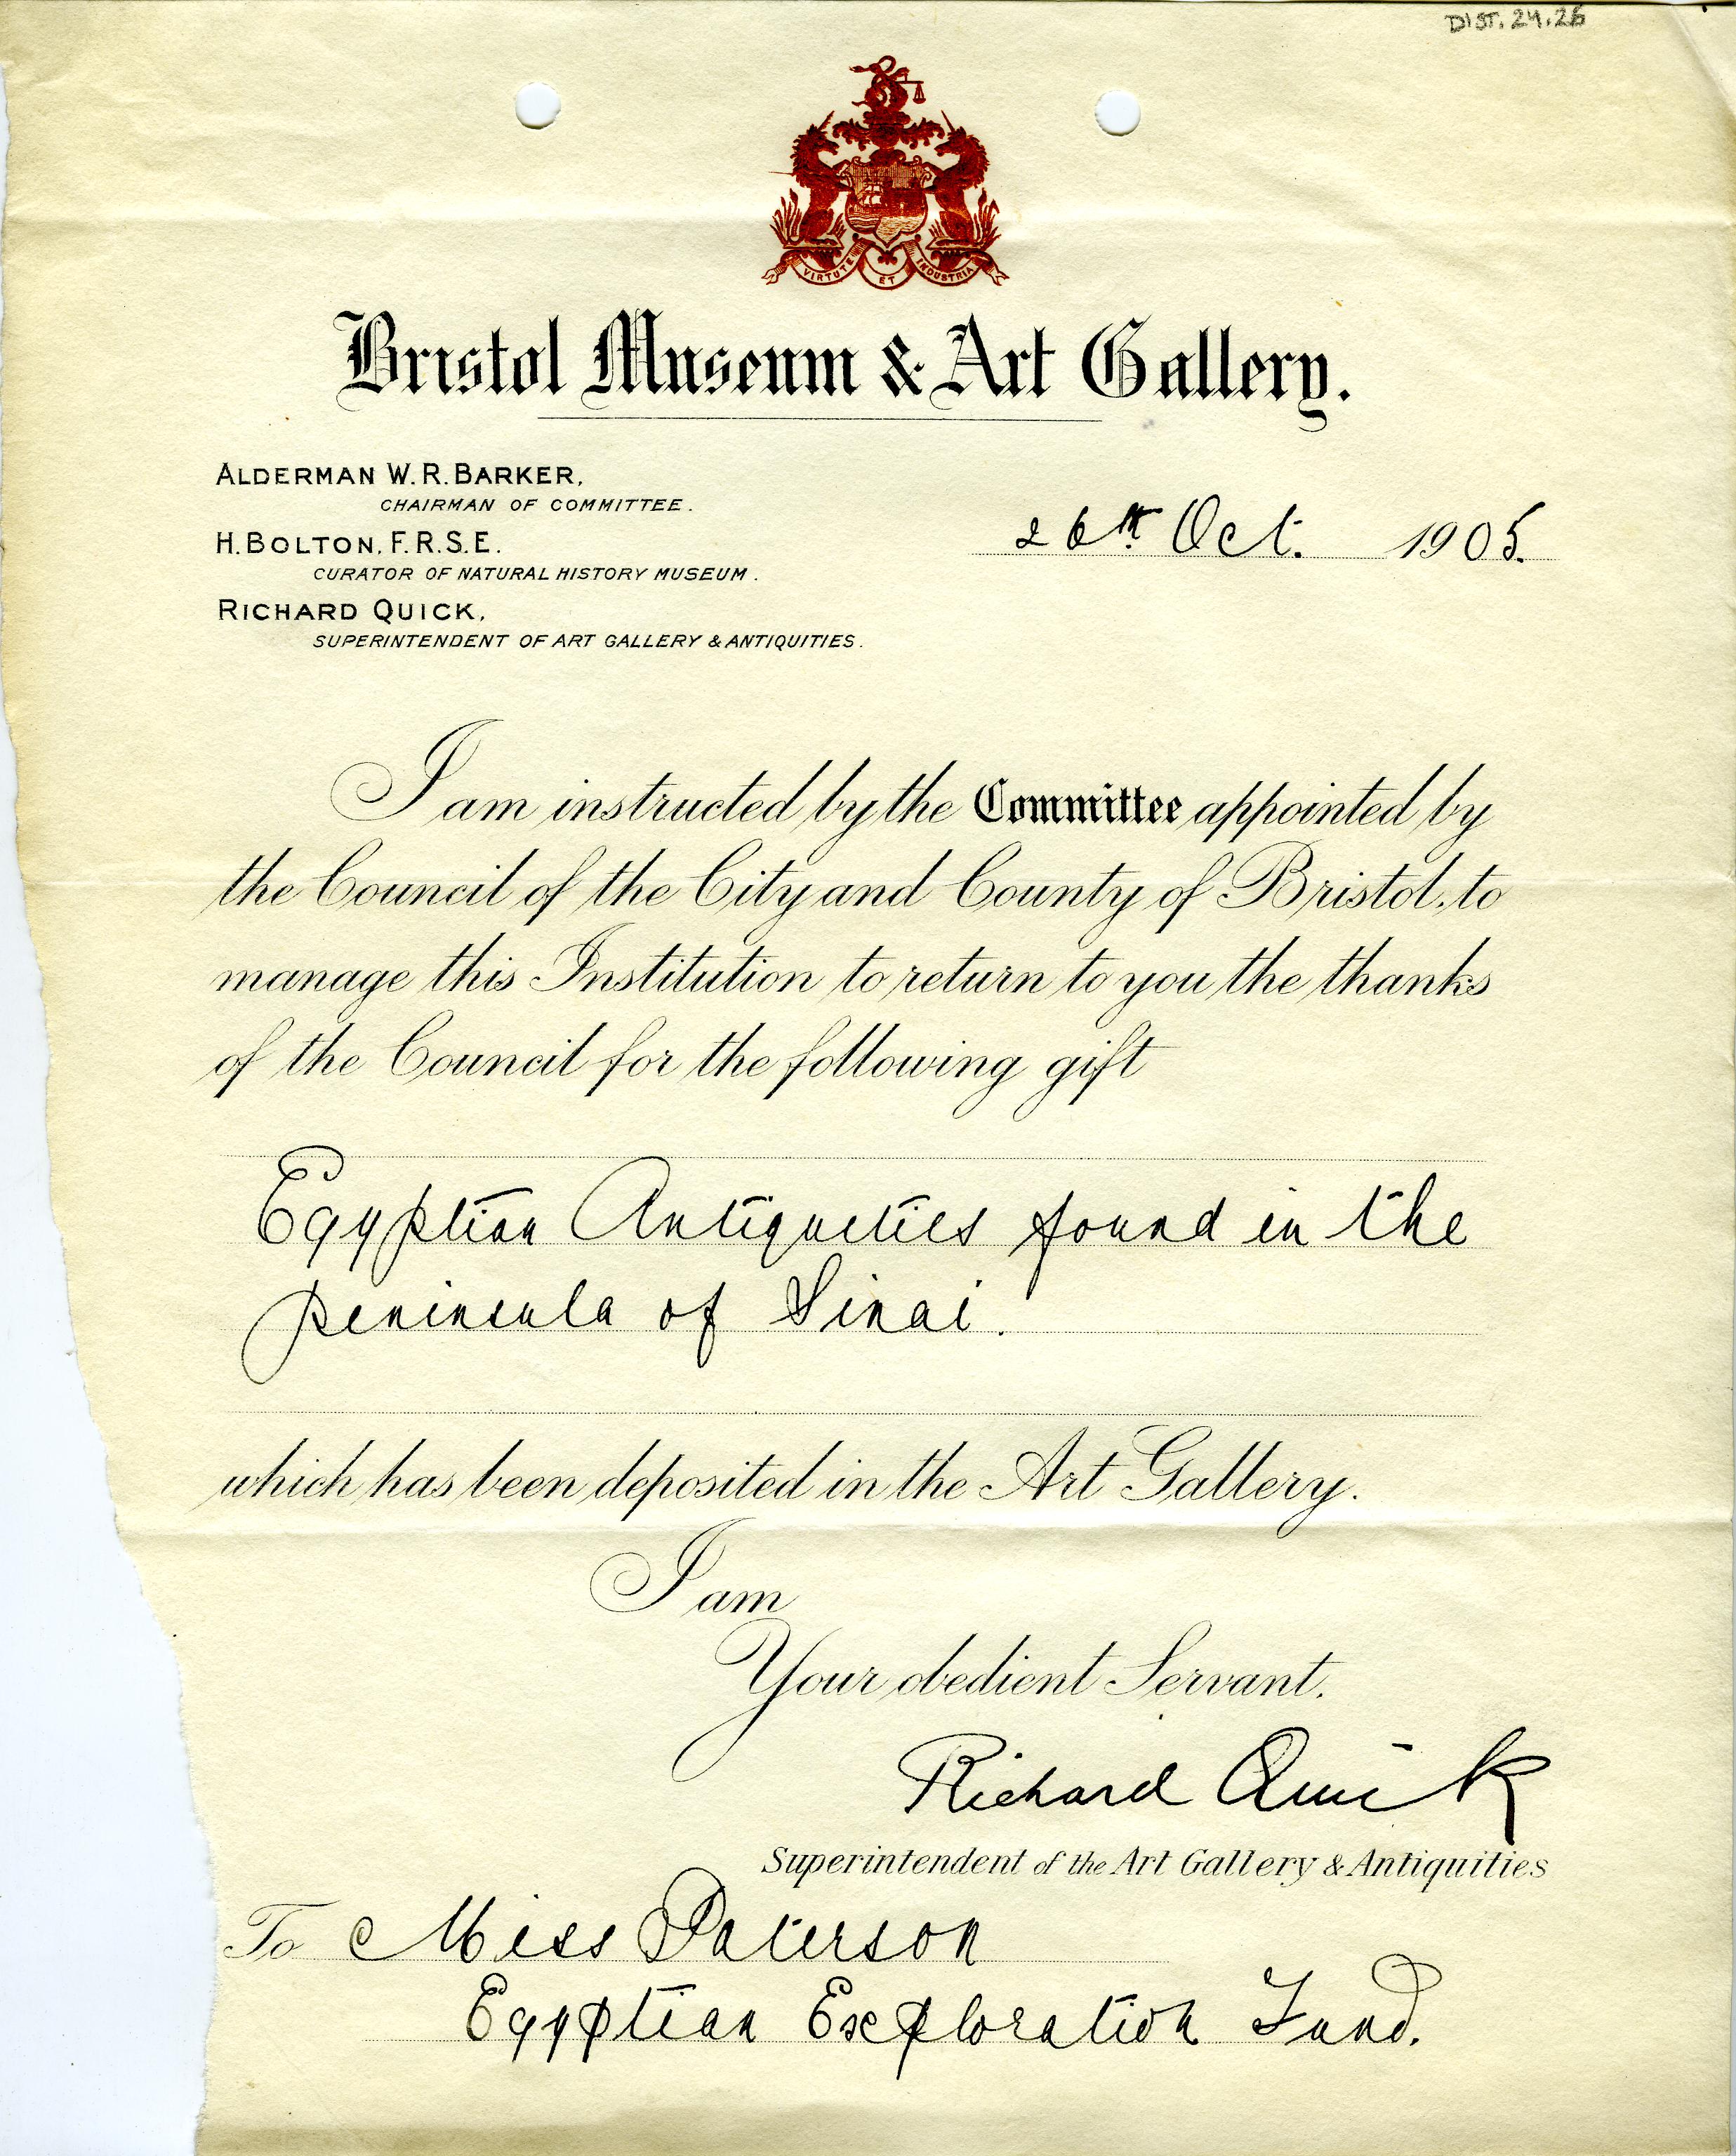 DIST. 24.26
VIRTUTE ET INDUSTRIA
Bristol Museum & Art Gallery.
ALDERMAN W. R. BARKER,
CHAIRMAN OF COMMITTEE.
H. BOLTON, F.R.S.E.
CURATOR OF NATURAL HISTORY MUSEUM.
26th Oct. 1905.
RICHARD QUICK,
SUPERINTENDENT OF ART GALLERY & ANTIQUITIES.
I am instructed by the Committee appointed by
the Council of the City and County of Bristol, to
manage this Institution to return to you the thanks
of the Council for the following gift
Egyptian Antiquities found in the
peninsula of Sinai.
which has been deposited in the Art Gallery.
I am
Your obedient Servant.
Richard Quick
Superintendent of the Art Gallery & Antiquities
To Miss Paterson
Egyptian Exploration Fund.